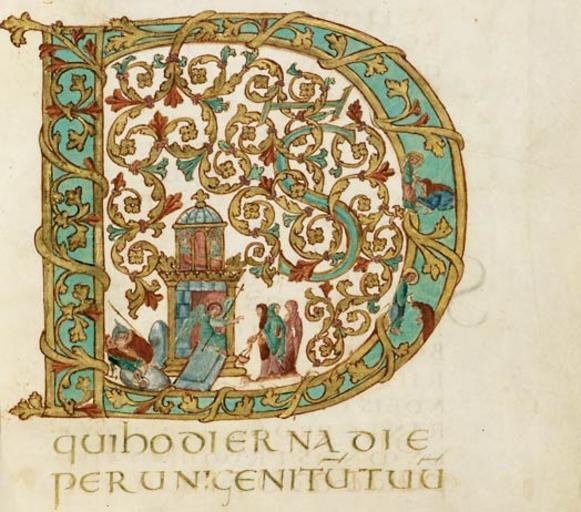 DS̄
quihodIERNA DIE
PERUNIGENITŪTUŪ